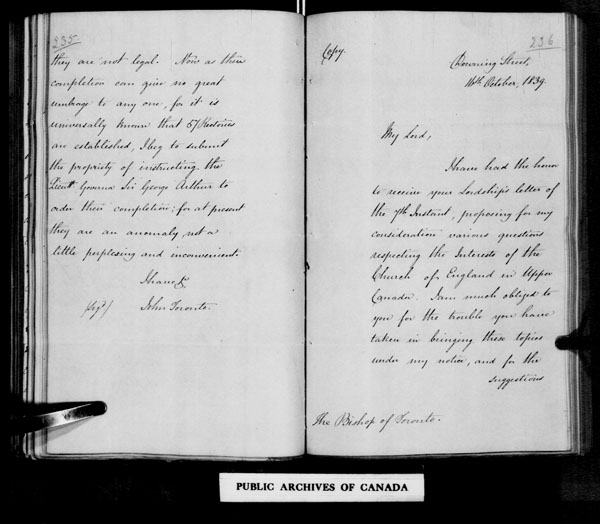 235
they are not legal. Now as their
completion can give no great
umbrage to any one, for it is
universally known that 57 Rectories
are established, I beg to submit
the propriety of instructing the
Lieut Governor Sir George Arthur to
order their completion; for at present
they are an anomaly not a
little perplexing and inconvenient.
I have &c
(sigd) John Toronto.
236
Copy.
Downing Street,
October, 1839
My Lord,
I have had the honor
to receive your Lordship's letter of
the 7th Instant, proposing for my
consideration various questions
respecting the Interests of the
Church of England in Upper
Canada. I am much obliged to
you for the trouble you have
taken in bringing these topics
under my notice, and for the
suggestions
The Bishop of Toronto.
PUBLIC ARCHIVES OF CANADA